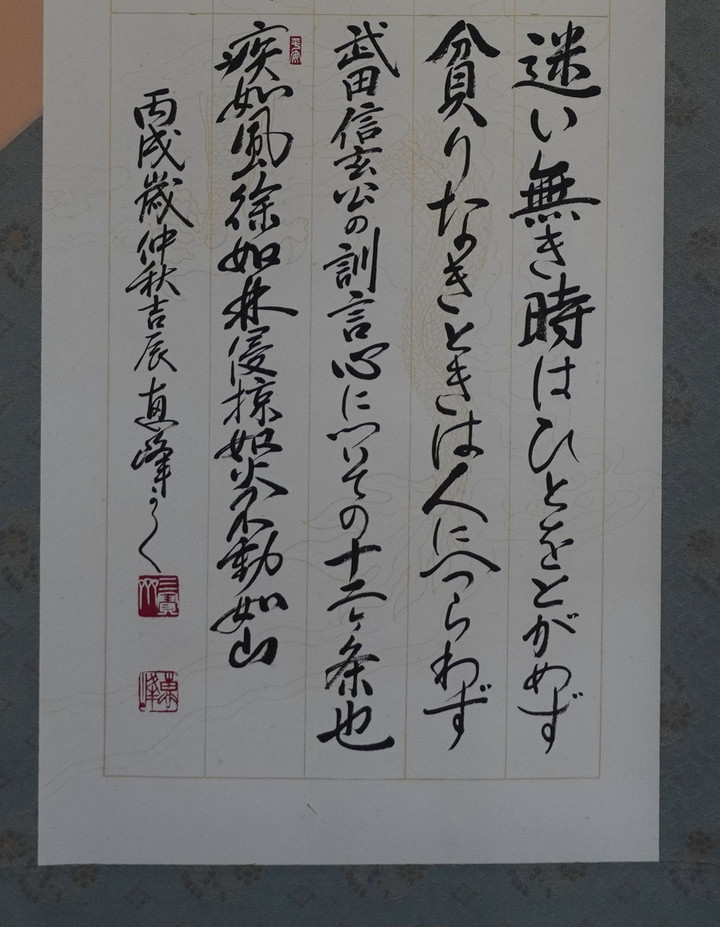 迷い無き時はひとをとがめず
貧りなきときは人にへつらわず
武田信玄公の訓言心についての十二ヶ条也
疾如風徐如林侵掠如火不動如山
丙戌歳仲秋吉辰